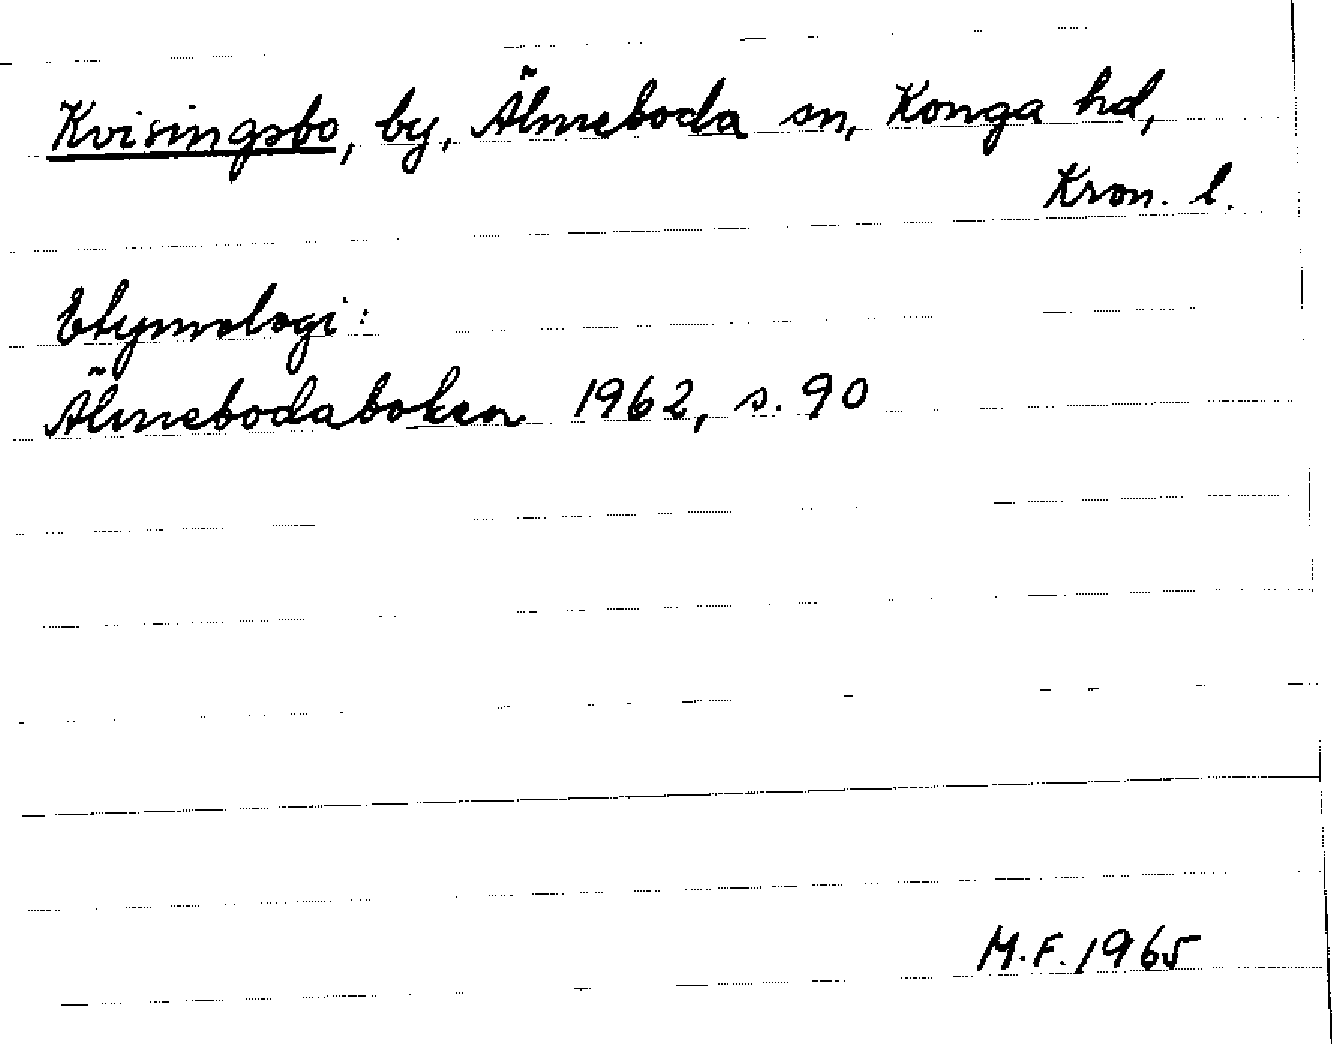 Kvisingsbo, by, Älmeboda sn, Konga hd,
Kron. l.
Etymologi:
Älmebodaboken 1962, s. 90
M.F. 1965